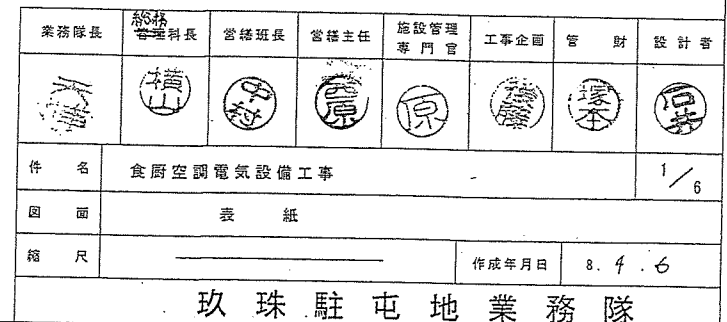 業務隊長 総務 管理科長 営繕班長 営繕主任 施設管理専門官 工事企画 管財 設計者
横山 中村 原 塚本
件名 食厨空調電気設備工事 1/6
図面 表紙
縮尺 作成年月日 8.4.6
玖珠駐屯地業務隊